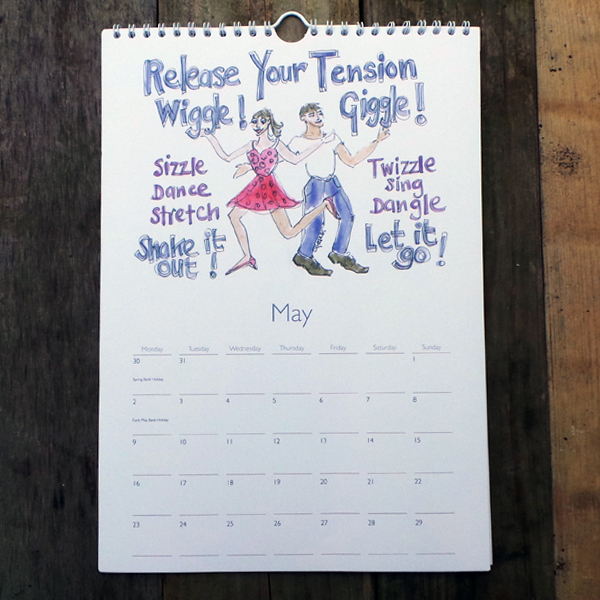 Release Your Tension
Wiggle! Giggle!
Sizzle
Dance
Stretch
Twizzle
Sing
Dangle
Shake it
out!
Let it
go!
May
Monday Tuesday Wednesday Thursday Friday Saturday Sunday
30 31 1
Spring Bank Holiday
2 3 4 5 6 7 8
Early May Bank Holiday
9 10 11 12 13 14 15
16 17 18 19 20 21 22
23 24 25 26 27 28 29